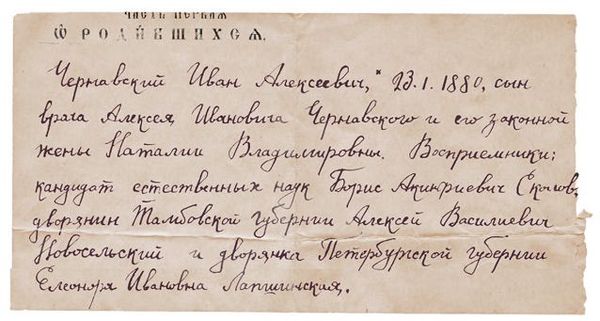 ЧАСТЬ ПЕРВАЯ
Ѿ РОДИ́ВШИХСѦ.
Чернавский Иван Алексеевич, * 23.1.1880, сын
врача Алексея Ивановича Чернавского и его законной
жены Наталии Владимировны. Восприемники:
кандидат естественных наук Борис
дворянин Тамбовской губернии Алексей Василиевич
Новосельский и дворянка Петербургской губернии
Елеонора Ивановна Лапшинская.